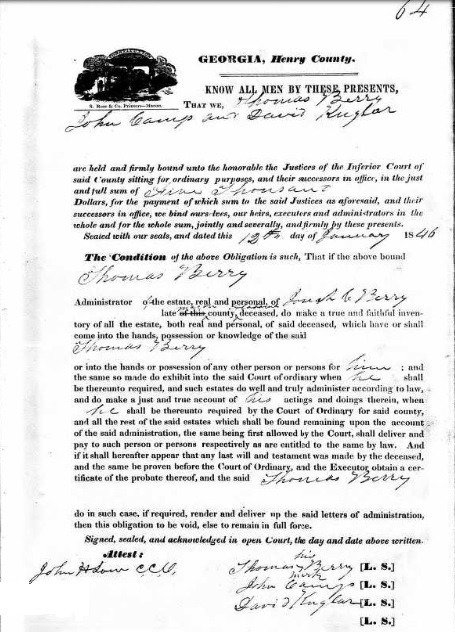 64
GEORGIA, Henry County.
S. Rose & Co. Printers—Macon.
KNOW ALL MEN BY THESE PRESENTS,
THAT WE, Thomas Berry
John Camp and David Knglar
are held and firmly bound unto the honorable the Justices of the Inferior Court of
said County sitting for ordinary purposes, and their successors in office, in the just
and full sum of Five Thousand
Dollars, for the payment of which sum to the said Justices as aforesaid, and their
successors in office, we bind ourselves, our heirs, executors and administrators in the
whole and for the whole sum, jointly and severally, and firmly by these presents.
Sealed with our seals, and dated this 12th day of January 1846
The Condition of the above Obligation is such, That if the above bound
Thomas Berry
Administrator of the estate, real and personal, of Joseph C Berry
late of this county, deceased, do make a true and faithful inven-
tory of all the estate, both real and personal, of said deceased, which have or shall
come into the hands, possession or knowledge of the said
Thomas Berry
or into the hands or possession of any other person or persons for him ; and
the same so made do exhibit into the said Court of ordinary when he shall
be thereunto required, and such estates do well and truly administer according to law,
and do make a just and true account of his actings and doings therein, when
he shall be thereunto required by the Court of Ordinary for said county,
and all the rest of the said estates which shall be found remaining upon the account
of the said administration, the same being first allowed by the Court, shall deliver and
pay to such person or persons respectively as are entitled to the same by law. And
if it shall hereafter appear that any last will and testament was made by the deceased,
and the same be proven before the Court of Ordinary, and the Executor obtain a cer-
tificate of the probate thereof, and the said Thomas Berry
do in such case, if required, render and deliver up the said letters of administration,
then this obligation to be void, else to remain in full force.
Signed, sealed, and acknowledged in open Court, the day and date above written.
Attest:
his
John H Low C.C.O. Thomas Berry [L. S.]
mark
John Camp [L. S.]
David Knglar [L. S.]
[L. S.]